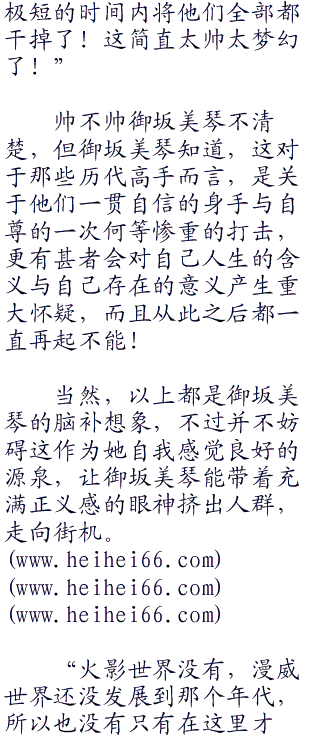 极短的时间内将他们全部都
干掉了！这简直太帅太梦幻
了！”
帅不帅御坂美琴不清
楚，但御坂美琴知道，这对
于那些历代高手而言，是关
于他们一贯自信的身手与自
尊的一次何等惨重的打击，
更有甚者会对自己人生的含
义与自己存在的意义产生重
大怀疑，而且从此之后都一
直再起不能！
当然，以上都是御坂美
琴的脑补想象，不过并不妨
碍这作为她自我感觉良好的
源泉，让御坂美琴能带着充
满正义感的眼神挤出人群，
走向街机。
(www.heihei66.com)
(www.heihei66.com)
(www.heihei66.com)
“火影世界没有，漫威
世界还没发展到那个年代，
所以也没有只有在这里才